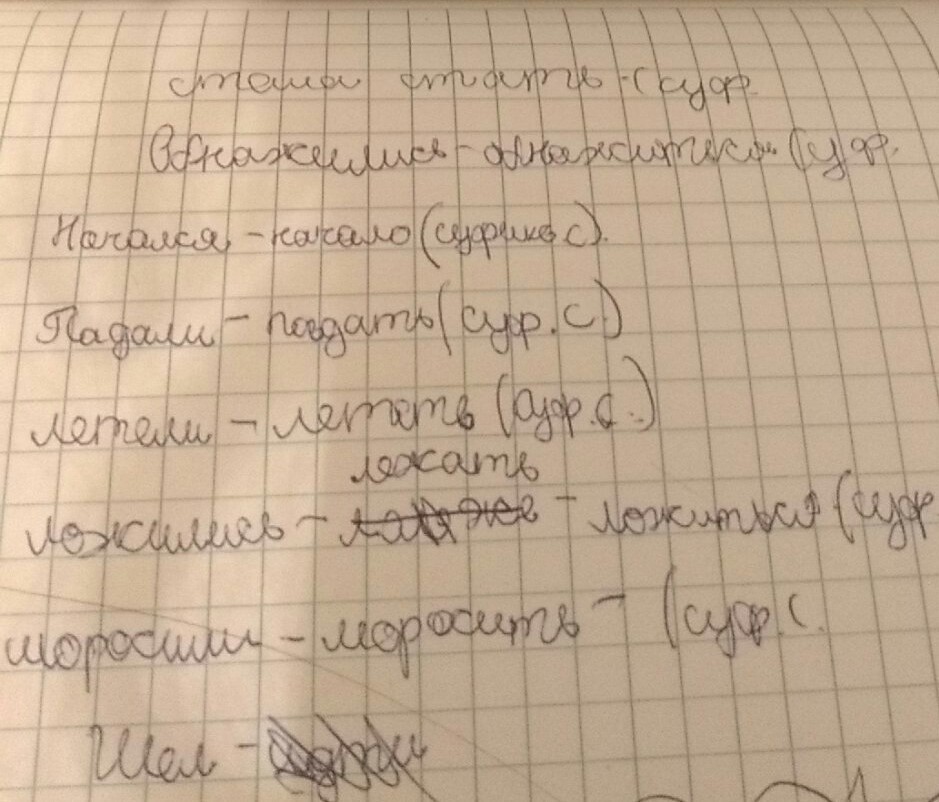 стала стать - (суф.
Обнажились - обнажиться (суф.
Начался - начало (суфикс с).
Падали - падать (суф. с.)
летели - летать (суф. с.)
лежать
ложились - - ложиться (суф
моросили - моросить - (суф. с.
Шел -